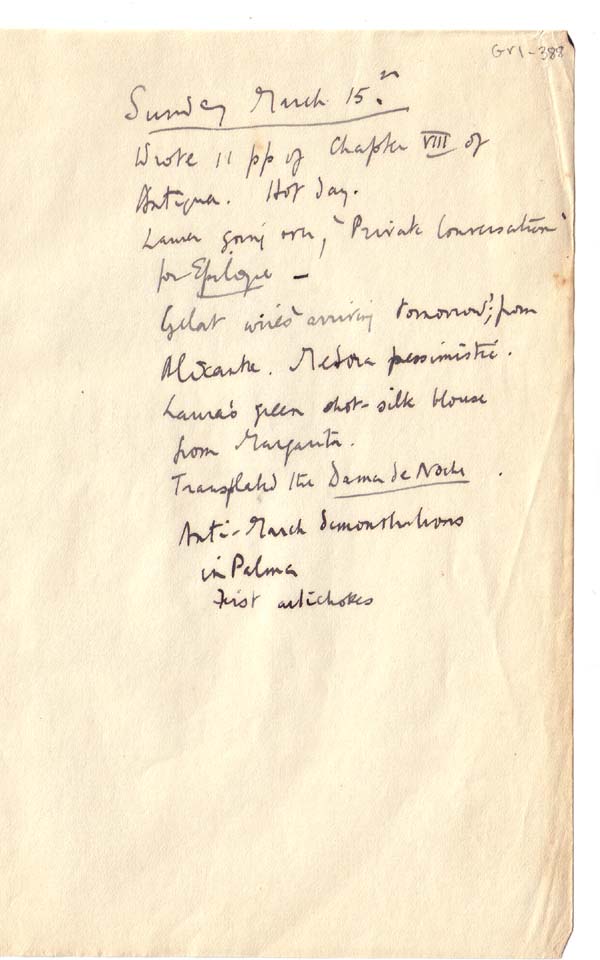 GVI-388
Sunday March 15th
Wrote 11 pp of Chapter VIII of
Antigua. Hot day.
Laura going over, "Private Conversation"
for Epilogue —
Gelat wires "arriving tomorrow", from
Alicante. Medora pessimistic.
Laura's green shot-silk blouse
from Margarita.
Transplanted the Dama de Noche.
Anti-March demonstrations
in Palma
First artichokes